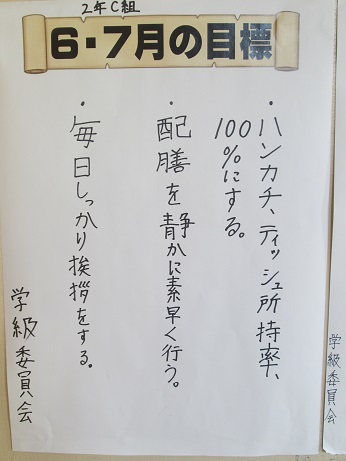 2年C組
6・7月の目標
・ハンカチ、ティッシュ所持率、
100%にする。
・配膳を静かに素早く行う。
・毎日しっかり挨拶をする。
学級委員会
学級委員会